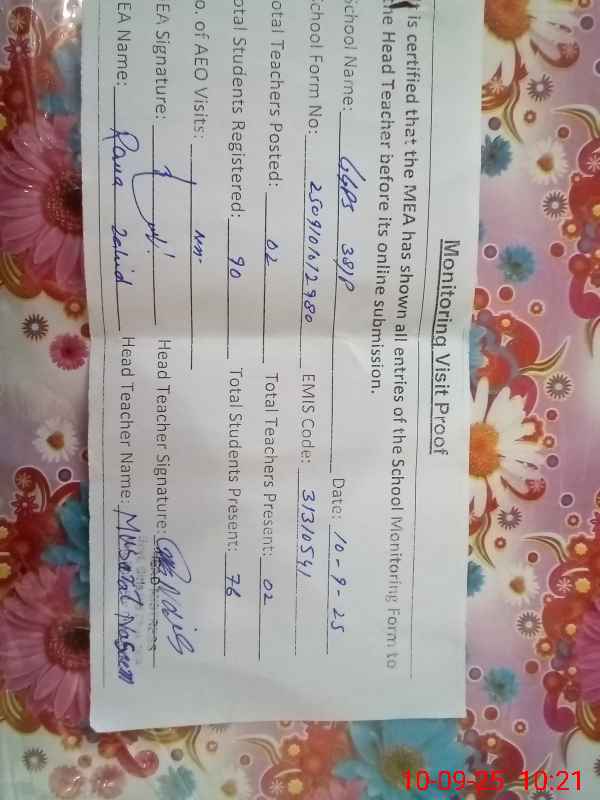 Monitoring Visit Proof
is certified that the MEA has shown all entries of the School Monitoring Form to
the Head Teacher before its online submission.
School Name: GGPS 38/P Date: 10-9-25
School Form No: EMIS Code: 31310541
otal Teachers Posted: 02 Total Teachers Present: 02
otal Students Registered: 90 Total Students Present: 76
o. of AEO Visits:
EA Signature: Head Teacher Signature:
EA Name: Rana Zahid Head Teacher Name: Musarat Naseem
10-09-25 10:21